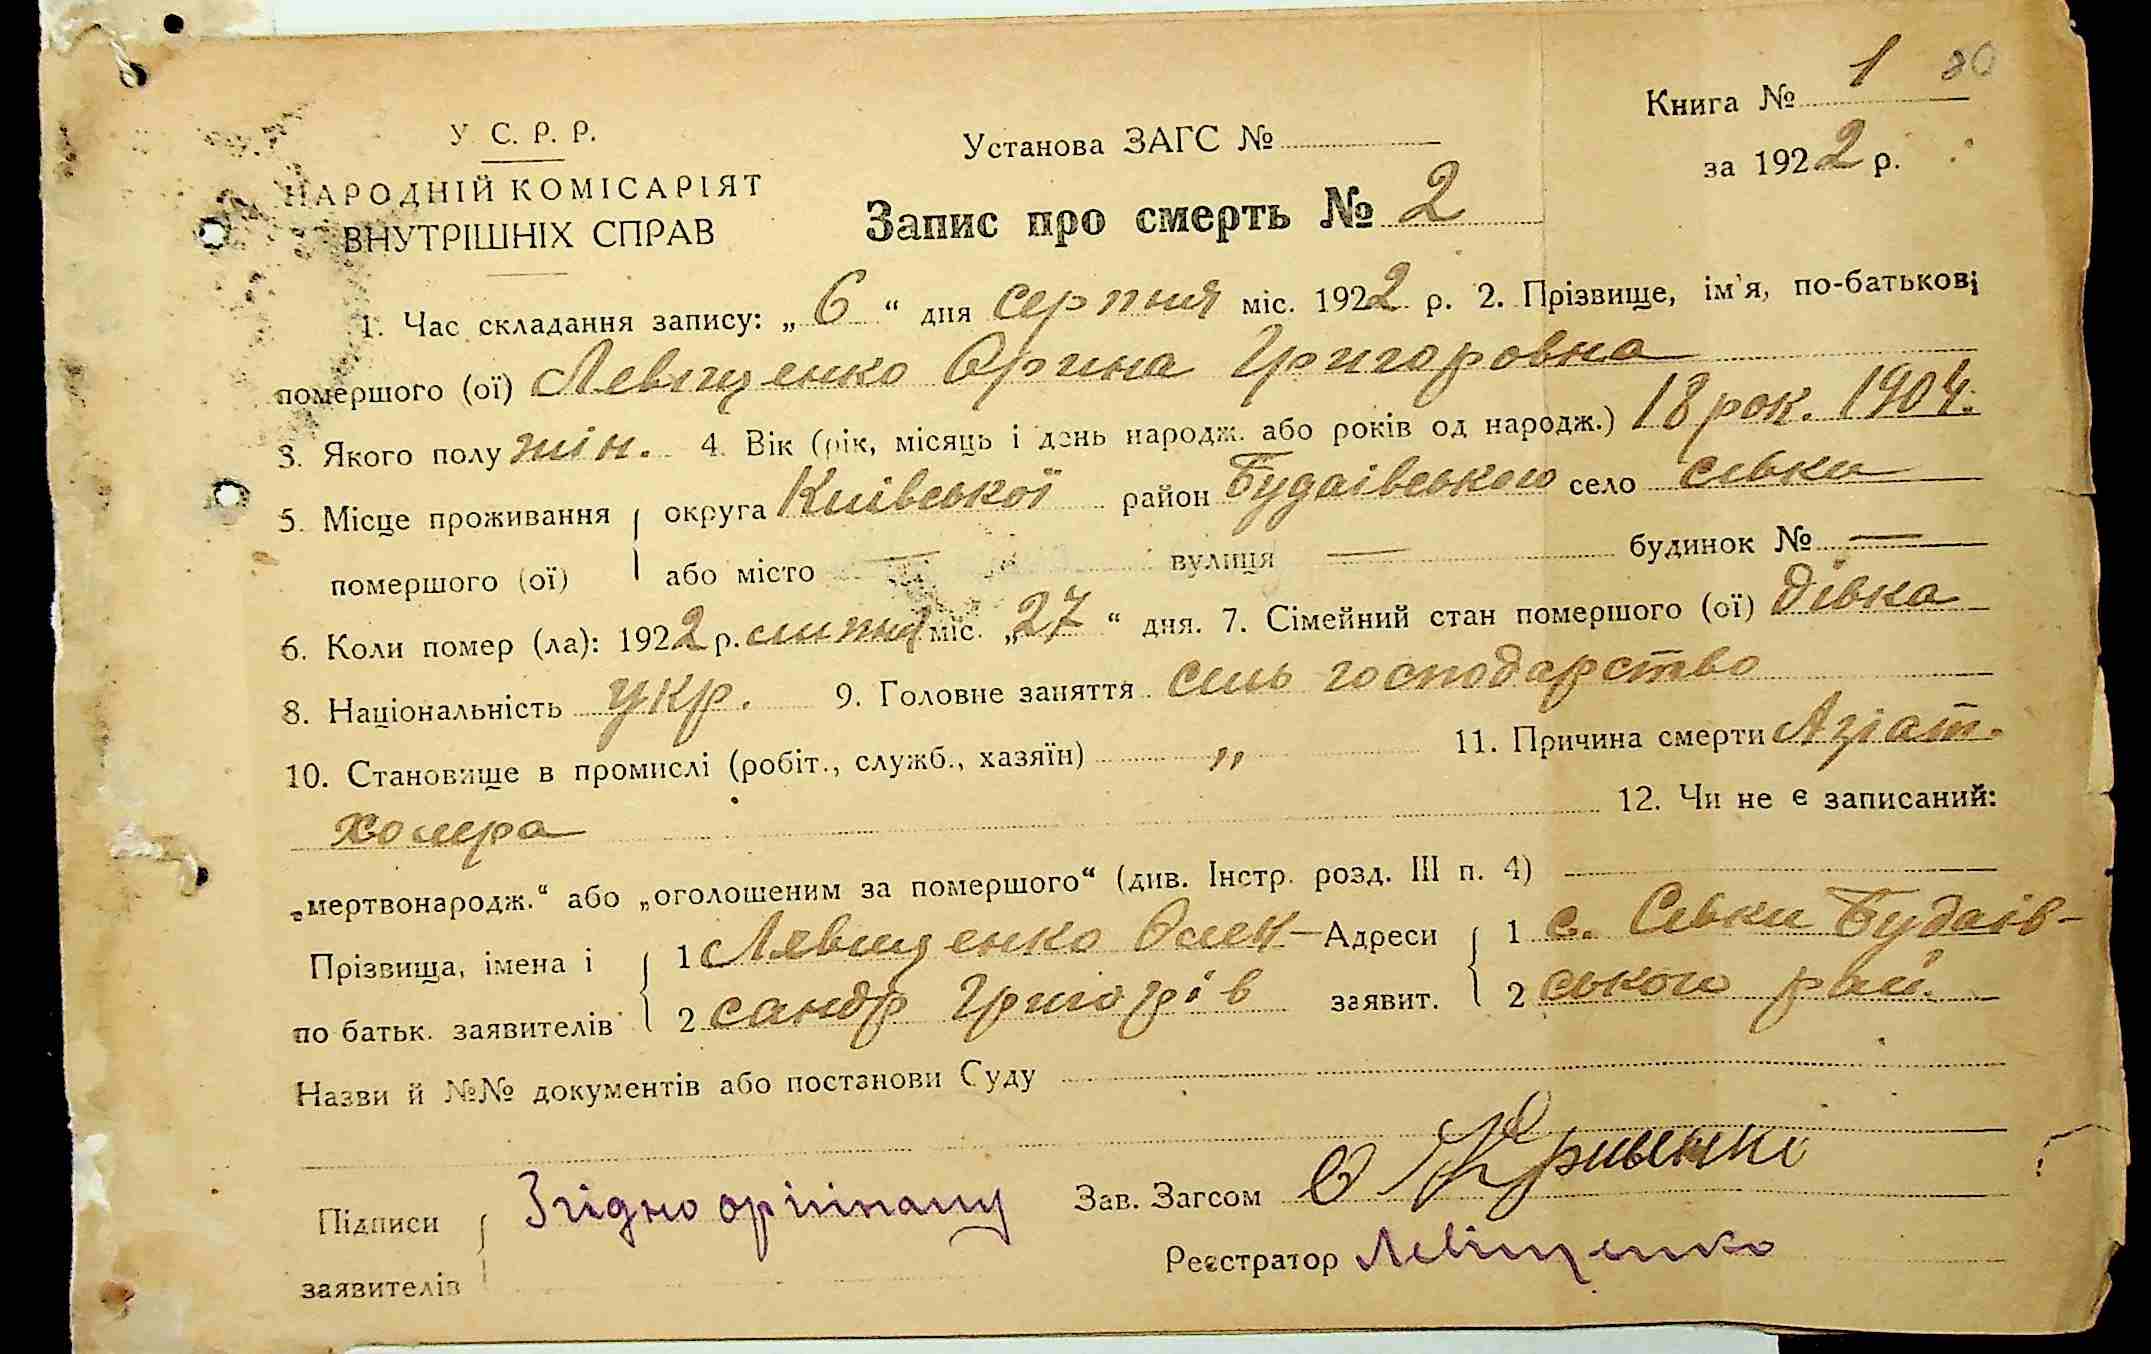 Книга № 1 80
У С. Р. Р.
Установа ЗАГС №
за 1922 р.
НАРОДНІЙ КОМІСАРІЯТ
ВНУТРІШНІХ СПРАВ
Запис про смерть № 2
1. Час складання запису: „ 6 “ дня серпня міс. 1922 р. 2. Прізвище, ім'я, по-батькові
помершого (ої) Левіщенко Орина Григоровна
3. Якого полу жін. 4. Вік (рік, місяць і день народж. або років од народж.) 18 рок. 1904.
5. Місце проживання округа Київської район Будаівського село Сівки
помершого (ої) або місто — вулиця — будинок № —
6. Коли помер (ла): 1922 р. липня міс. „27 “ дня. 7. Сімейний стан помершого (ої) дівка
8. Національність укр. 9. Головне заняття силь господарство
10. Становище в промислі (робіт., служб., хазяїн) „ 11. Причина смерти Азіат.
холера 12. Чи не є записаний:
„мертвонародж.“ або „оголошеним за помершого“ (див. Інстр. розд. III п. 4)
Прізвища, імена і 1 Левіщенко Олек- Адреси 1 с. Сівки Будаів-
по батьк. заявителів 2 сандр Григорів заявит. 2 ського рай.
Назви й №№ документів або постанови Суду
Підписи Згідно оригіналу Зав. Загсом
заявителів Реєстратор Левіщенко